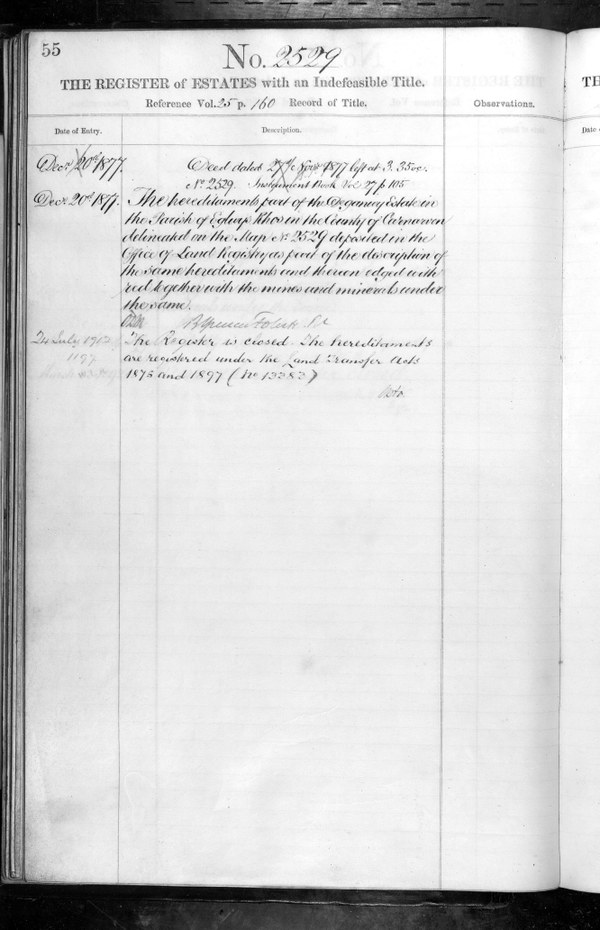 55
No. 2529
THE REGISTER of ESTATES with an Indefeasible Title.
Reference Vol. 25 p. 160 Record of Title.
Observations.
Date of Entry.
Description.
Decr 20th 1877.
Deed dated 27th 1877 left at 3.35 oc.
No 2529. Instrument Book Vol 27 p 105
Decr 20th 1877.
The hereditaments part of the Estate in
the Parish of Eglwys Rhos in the County of Carnarvon
delineated on the Map No 2529 deposited in the
Office of Land Registry as part of the description of
the same hereditaments and thereon edged with
red together with the mines and minerals under
the same.
July 1913
1197
The Register is closed. The hereditaments
are registered under the Land Transfer Acts
1875 and 1897 (No 13383)
TH
Date